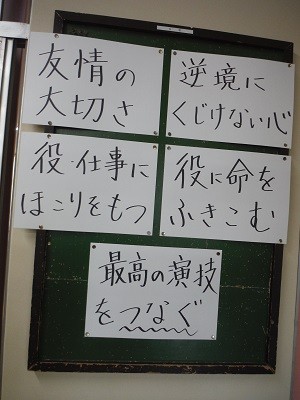 友情の
大切さ
逆境に
くじけない心
役・仕事に
ほこりをもつ
役に命を
ふきこむ
最高の演技
をつなぐ